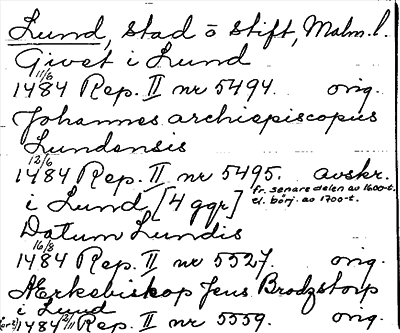 Lund, stad o stift, Malm. l.
Givet i Lund
11/6
1484 Rep. II nr 5494. orig.
Johannes archiepiscopus
Lundensis
12/6
1484 Rep. II nr 5495. avskr.
fr. senare delen av 1600-t.
i Lund [4 ggr] el. börj. av 1700-t.
Datum Lundis
16/8
1484 Rep. II nr 5527. orig.
Ærkebiskop Jens Brodzstorp
i Lund
1484 Rep. II nr 5559. orig.